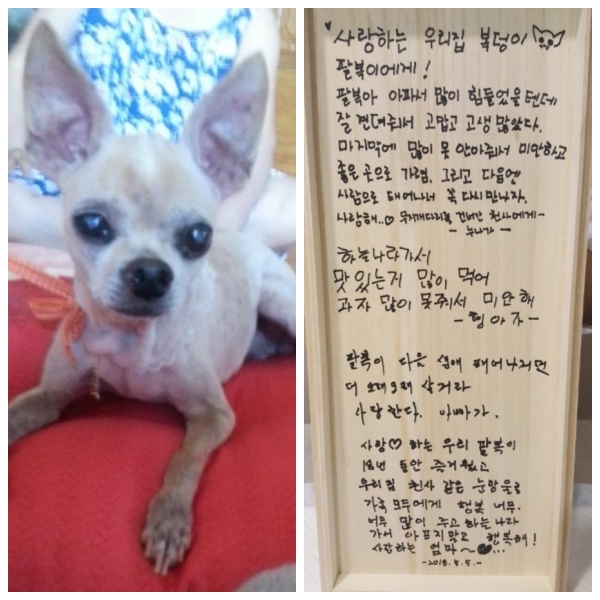 사랑하는 우리집 복덩이
팔복이에게!
팔복아 아파서 많이 힘들었을텐데
잘 견뎌줘서 고맙고 고생 많았다.
마지막에 많이 못 안아줘서 미안하고
좋은 곳으로 가렴. 그리고 다음엔
사람으로 태어나서 꼭 다시 만나자.
사랑해..♡ 무지개다리를 건너간 천사에게-
- 누나가 -
하늘나라가서
맛있는거 많이 먹어
과자 많이 못줘서 미안해
- 형아가 -
팔복이 다음 생애 태어나거던
더 오래오래 살거라
사랑한다. 아빠가.
사랑♡하는 우리 팔복이
18년 동안 즐거웠고
우리집 천사 같은 눈망울로
가족 모두에게 행복 너무.
너무 많이 주고 하늘나라
가서 아프지말고 행복해!
사랑하는 엄마~♥...
-2018.5.5.-